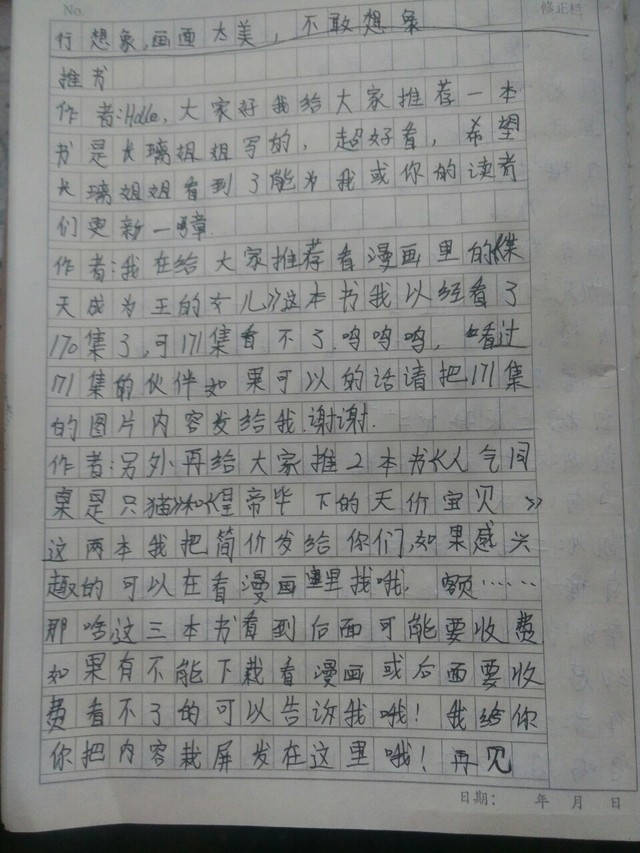 No.
修正栏
行想象,画面太美,不敢想象
推书
作者:Hdle,大家好我给大家推荐一本
书是长璃姐姐写的,超好看,希望
长璃姐姐看到了能为我或你的读者
们更新一章.
作者:我在给大家推荐看漫画里的《某
天成为王的女儿》这本书我以经看了
170集了,可171集看不了.呜呜呜,看过
171集的伙伴如果可以的话请把171集
的图片内容发给我.谢谢.
作者:另外再给大家推2本书《人气同
桌是只猫》和《皇帝毕下的天价宝贝》
这两本我把简价发给你们,如果感兴
趣的可以在看漫画里找哦.额……
那啥,这三本书看到后面可能要收费
如果有不能下栽看漫画或后面要收
费看不了的可以告诉我哦!我给你
你把内容栽屏发在这里哦!再见
日期: 年 月 日